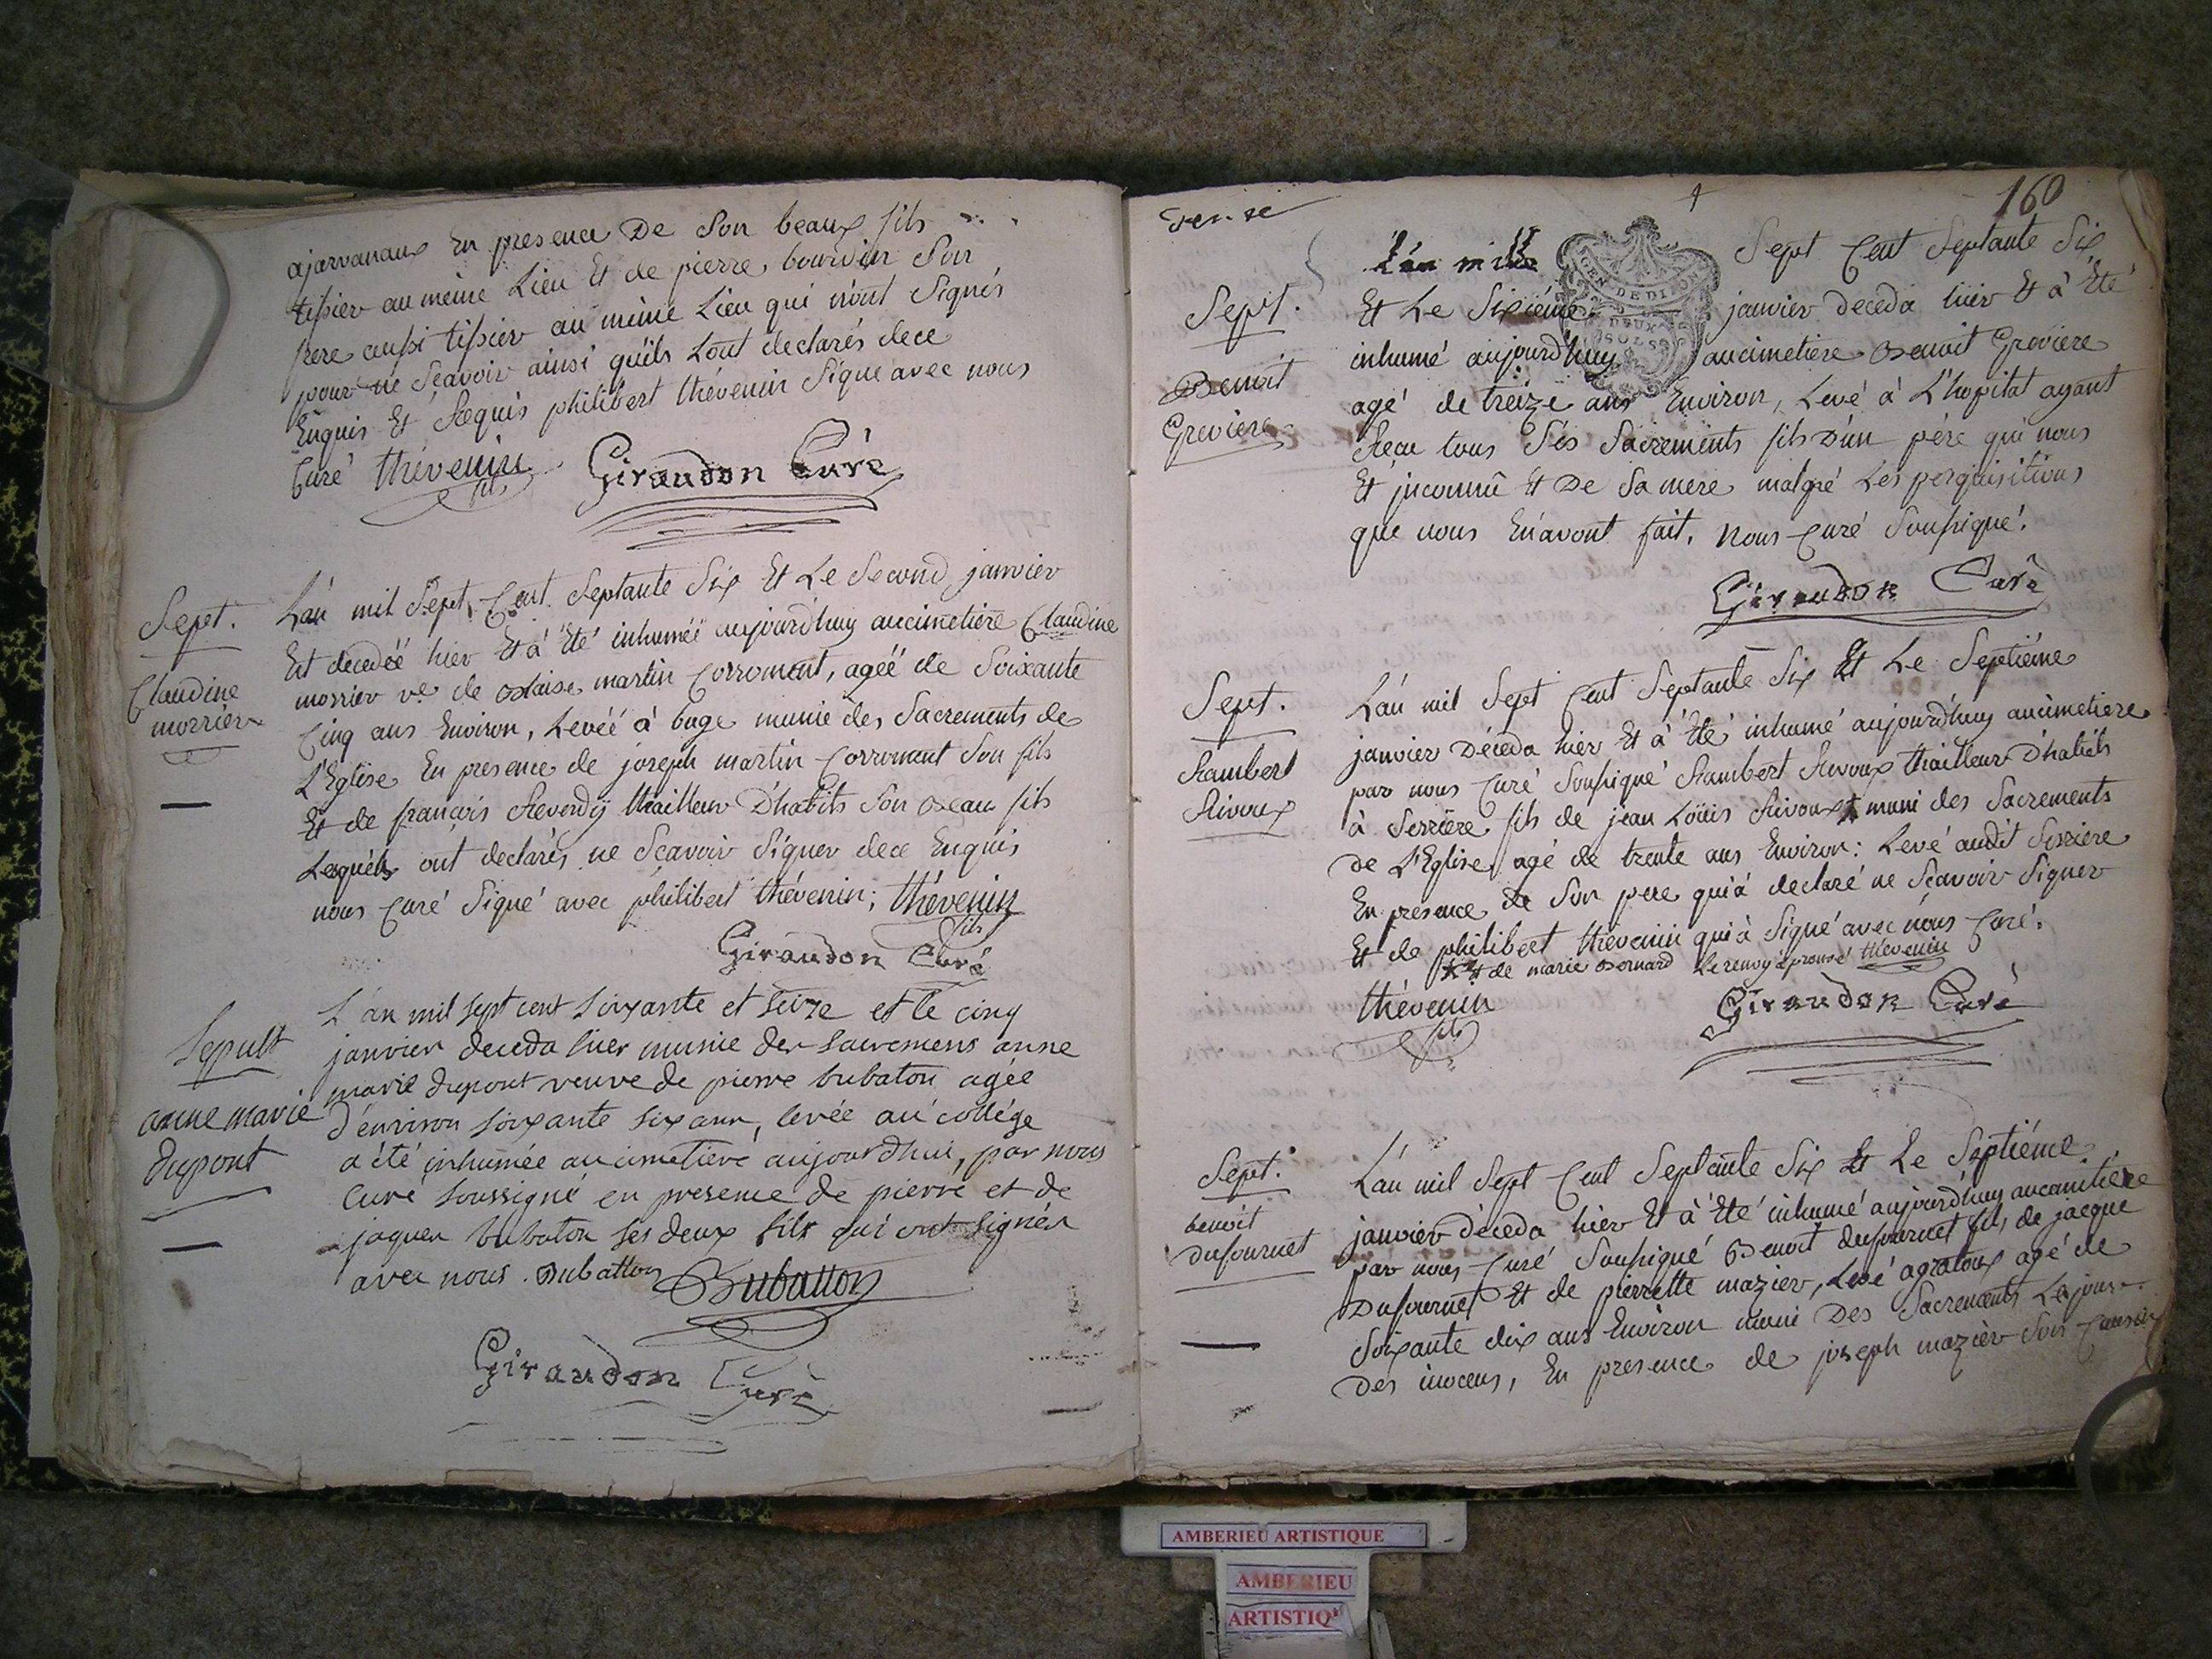 ajarvanaux En presence De Son beaux fils
tissier au même Lieu Et de pierre bourdin Son
frere aussi tissier au même Lieu qui n'ont Signés
pour ne Sçavoir ainsi quils L'ont declarés dece
Enquis Et Requis philibert thévenin Signe avec nous
Curé thévenin fils Giraudon Curé
Sept.
Claudine
morrier
L'an mil Sept Cent Septante Six Et Le Second janvier
Est decedéé hier Et à Eté inhuméé aujourdhuy aucimetiere Claudine
morrier ve. de Blaise martin Corromant, agéé de Soixante
Cinq ans Environ, Levéé à buge munie des Sacrements de
L'Eglise En presence de joseph martin Corromant Son fils
Et de françois Reverdÿ thailleur D'habits Son Beau fils
Lesquels ont declarés ne Sçavoir Signer dece Enquis
nous Curé Signé avec philibert thévenin; thévenin
fils
Giraudon Curé
Sepult
anne marie
dupont
L'an mil sept cent soixante et seize et le cinq
janvier deceda hier munie des sacremens anne
marie dupont veuve de pierre bubaton agée
d'environ soixante six ans, levée au collége
a été inhumée au cimetiere aujourdhui, par nous
Curé soussigné en presence de pierre et de
jaques bubaton ses deux fils qui ont signés
avec nous. Bubatton Bubatton
Giraudon Curé
160
Sept.
Benoit
Greviere
L'an mille Sept Cent Septante Six
Et Le Sixiéme janvier deceda hier Et à Eté
inhumé aujourd'huy aucimetiere Benoit Greviere
agé de treize ans Environ, Levé à L'hopital ayant
Recu tous Ses Sacrements fils D'un pére qui nous
Et jnconnû Et De Sa mere malgré Les perquisitions
que nous En avont fait. Nous Curé Soussigné.
Giraudon Curé
Sept.
Rambert
Rivoux
L'an mil Sept Cent Septante Six Et Le Septiéme
janvier Déceda hier Et à Eté inhumé aujourdhuy aucimetiere
par nous Curé Soussigné Rambert Rivoux thailleur D'habits
à Serriere fils de jean Loüis Rivoux muni des Sacrements
De L'Eglise agé de trente ans Environ: Levé audit Serriere
En presence de Son pere qui à declaré ne Sçavoir Signer
Et de philibert thévenin qui à Signé avec nous Curé.
Et de marie Bernard Le renvoy aprouvé thévenin
thévenin fils Giraudon Curé
Sept.
benoit
Dufournet
L'an mil Sept Cent Septante Six Et Le Septiéme
janvier déceda hier Et à Eté inhumé aujourdhuy aucimitiere
par nous Curé Soussigné Benoit dufournet fils de jacque
Dufournet Et de pierrette mazier, Levé agratoux agé de
Soixante dix ans Environ muni Des Sacrements Le jour
Des inocens, En presence de joseph mazier Son Cousin
AMBERIEU ARTISTIQUE
AMBERIEU
ARTISTIQ